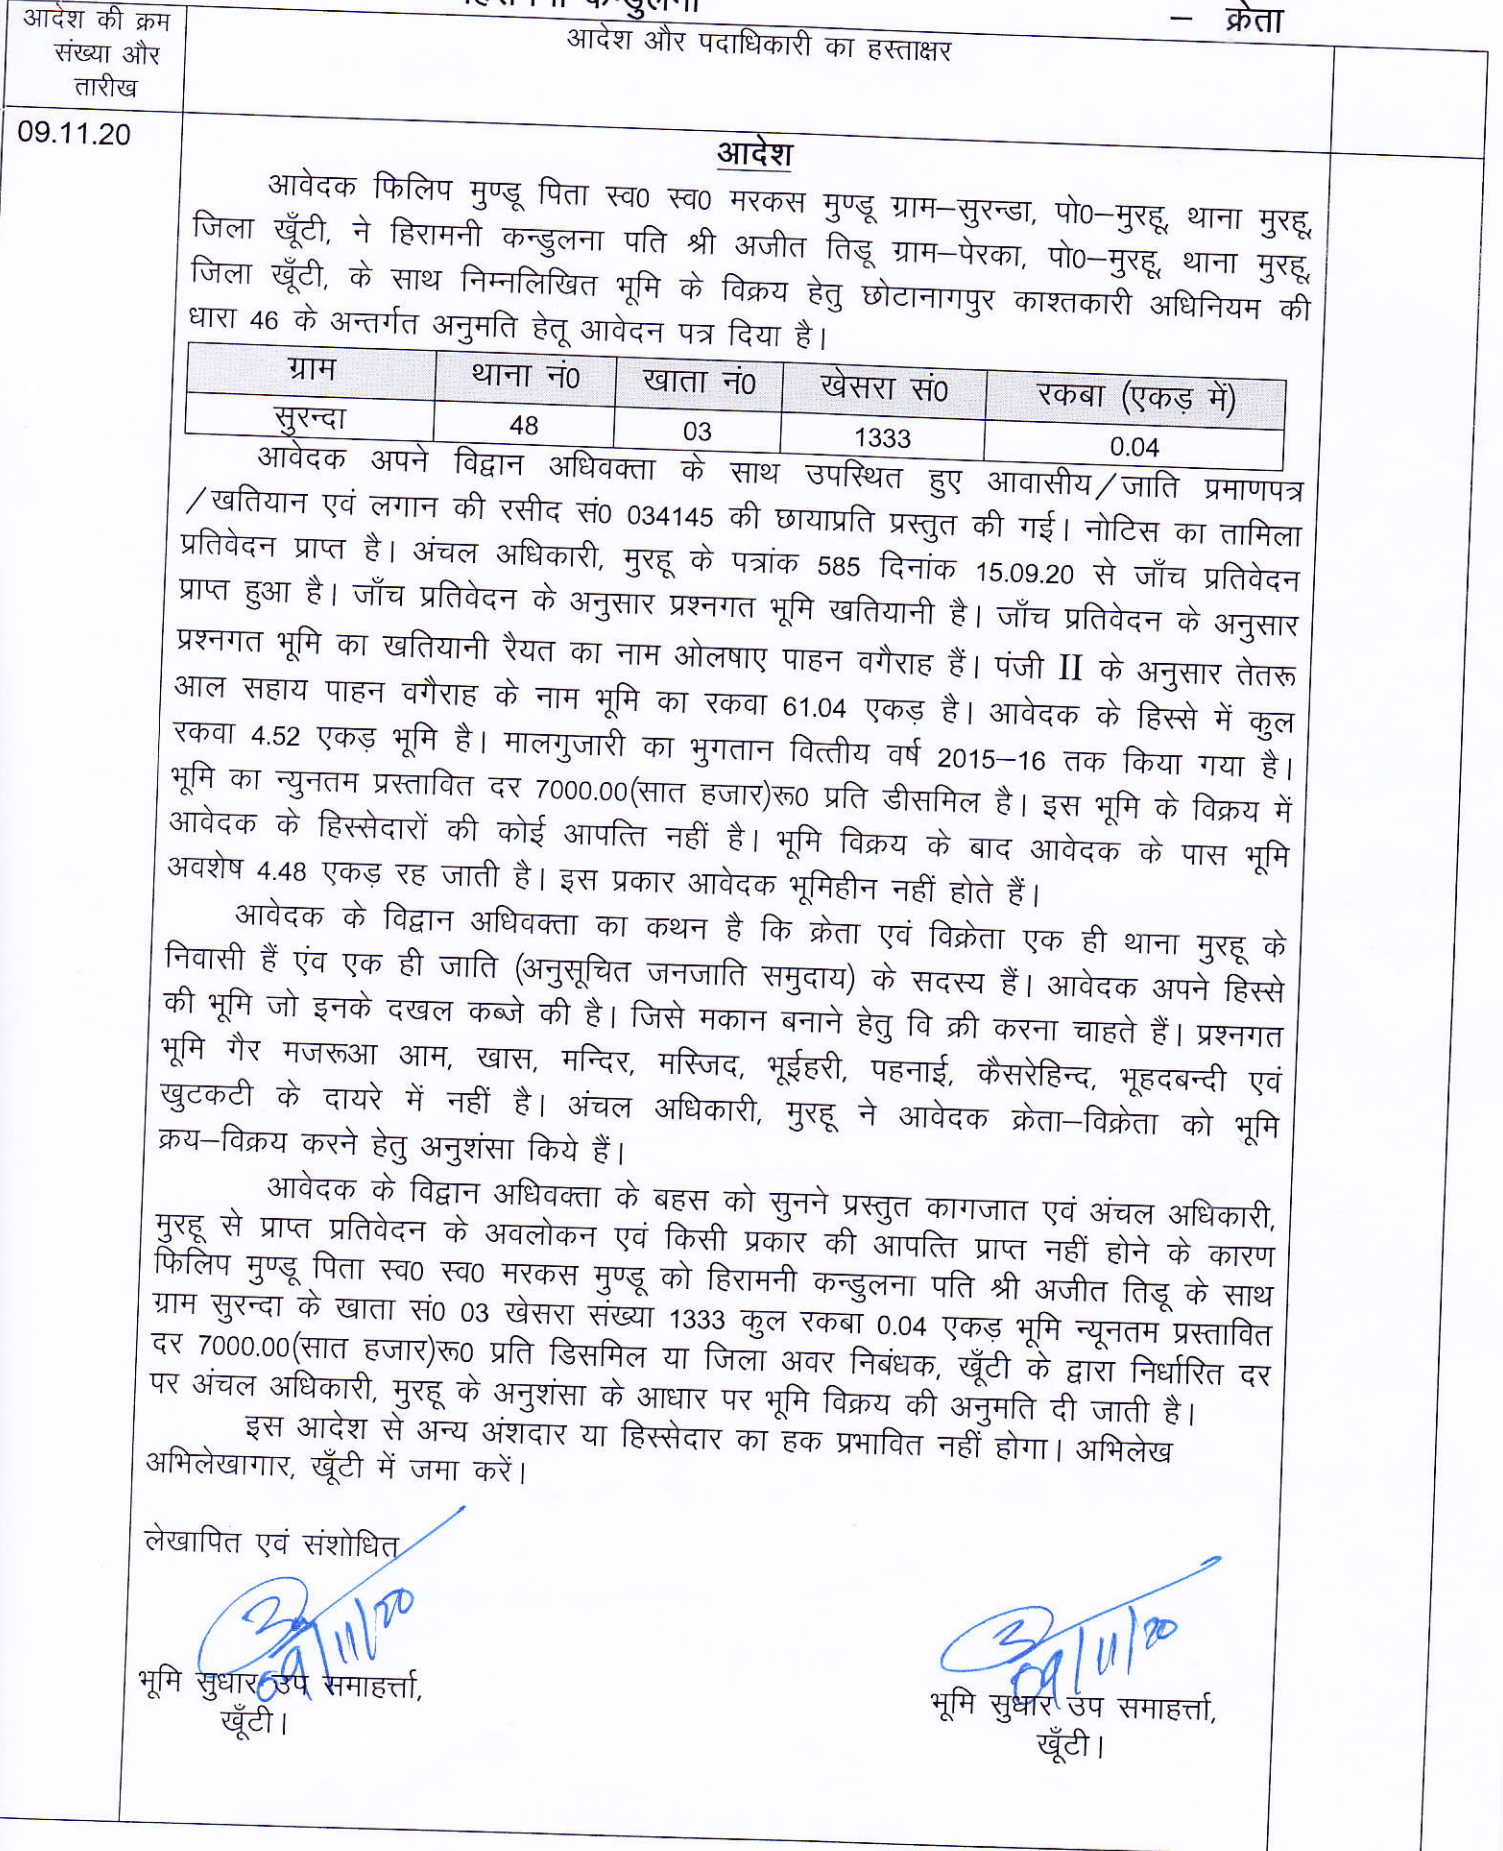 कन्डुलना
– क्रेता
आदेश की क्रम
संख्या और
तारीख
आदेश और पदाधिकारी का हस्ताक्षर
09.11.20
आदेश
आवेदक फिलिप मुण्डू पिता स्व0 स्व0 मरकस मुण्डू ग्राम–सुरन्डा, पो0–मुरहू, थाना मुरहू,
जिला खूँटी, ने हिरामनी कन्डुलना पति श्री अजीत तिडू ग्राम–पेरका, पो0–मुरहू, थाना मुरहू,
जिला खूँटी, के साथ निम्नलिखित भूमि के विक्रय हेतु छोटानागपुर काश्तकारी अधिनियम की
धारा 46 के अन्तर्गत अनुमति हेतू आवेदन पत्र दिया है।
ग्राम थाना नं0 खाता नं0 खेसरा सं0 रकबा (एकड़ में)
सुरन्दा 48 03 1333 0.04
आवेदक अपने विद्वान अधिवक्ता के साथ उपस्थित हुए आवासीय/जाति प्रमाणपत्र
/खतियान एवं लगान की रसीद सं0 034145 की छायाप्रति प्रस्तुत की गई। नोटिस का तामिला
प्रतिवेदन प्राप्त है। अंचल अधिकारी, मुरहू के पत्रांक 585 दिनांक 15.09.20 से जाँच प्रतिवेदन
प्राप्त हुआ है। जाँच प्रतिवेदन के अनुसार प्रश्नगत भूमि खतियानी है। जाँच प्रतिवेदन के अनुसार
प्रश्नगत भूमि का खतियानी रैयत का नाम ओलषाए पाहन वगैराह हैं। पंजी II के अनुसार तेतरू
आल सहाय पाहन वगैराह के नाम भूमि का रकवा 61.04 एकड़ है। आवेदक के हिस्से में कुल
रकवा 4.52 एकड़ भूमि है। मालगुजारी का भुगतान वित्तीय वर्ष 2015–16 तक किया गया है।
भूमि का न्युनतम प्रस्तावित दर 7000.00(सात हजार)रू0 प्रति डीसमिल है। इस भूमि के विक्रय में
आवेदक के हिस्सेदारों की कोई आपत्ति नहीं है। भूमि विक्रय के बाद आवेदक के पास भूमि
अवशेष 4.48 एकड़ रह जाती है। इस प्रकार आवेदक भूमिहीन नहीं होते हैं।
आवेदक के विद्वान अधिवक्ता का कथन है कि क्रेता एवं विक्रेता एक ही थाना मुरहू के
निवासी हैं एंव एक ही जाति (अनुसूचित जनजाति समुदाय) के सदस्य हैं। आवेदक अपने हिस्से
की भूमि जो इनके दखल कब्जे की है। जिसे मकान बनाने हेतु वि क्री करना चाहते हैं। प्रश्नगत
भूमि गैर मजरूआ आम, खास, मन्दिर, मस्जिद, भूईहरी, पहनाई, कैसरेहिन्द, भूहदबन्दी एवं
खुटकटी के दायरे में नहीं है। अंचल अधिकारी, मुरहू ने आवेदक क्रेता–विक्रेता को भूमि
क्रय–विक्रय करने हेतु अनुशंसा किये हैं।
आवेदक के विद्वान अधिवक्ता के बहस को सुनने प्रस्तुत कागजात एवं अंचल अधिकारी,
मुरहू से प्राप्त प्रतिवेदन के अवलोकन एवं किसी प्रकार की आपत्ति प्राप्त नहीं होने के कारण
फिलिप मुण्डू पिता स्व0 स्व0 मरकस मुण्डू को हिरामनी कन्डुलना पति श्री अजीत तिडू के साथ
ग्राम सुरन्दा के खाता सं0 03 खेसरा संख्या 1333 कुल रकबा 0.04 एकड़ भूमि न्यूनतम प्रस्तावित
दर 7000.00(सात हजार)रू0 प्रति डिसमिल या जिला अवर निबंधक, खूँटी के द्वारा निर्धारित दर
पर अंचल अधिकारी, मुरहू के अनुशंसा के आधार पर भूमि विक्रय की अनुमति दी जाती है।
इस आदेश से अन्य अंशदार या हिस्सेदार का हक प्रभावित नहीं होगा। अभिलेख
अभिलेखागार, खूँटी में जमा करें।
लेखापित एवं संशोधित
09/11/20
09/11/20
भूमि सुधार उप समाहर्त्ता,
खूँटी।
भूमि सुधार उप समाहर्त्ता,
खूँटी।